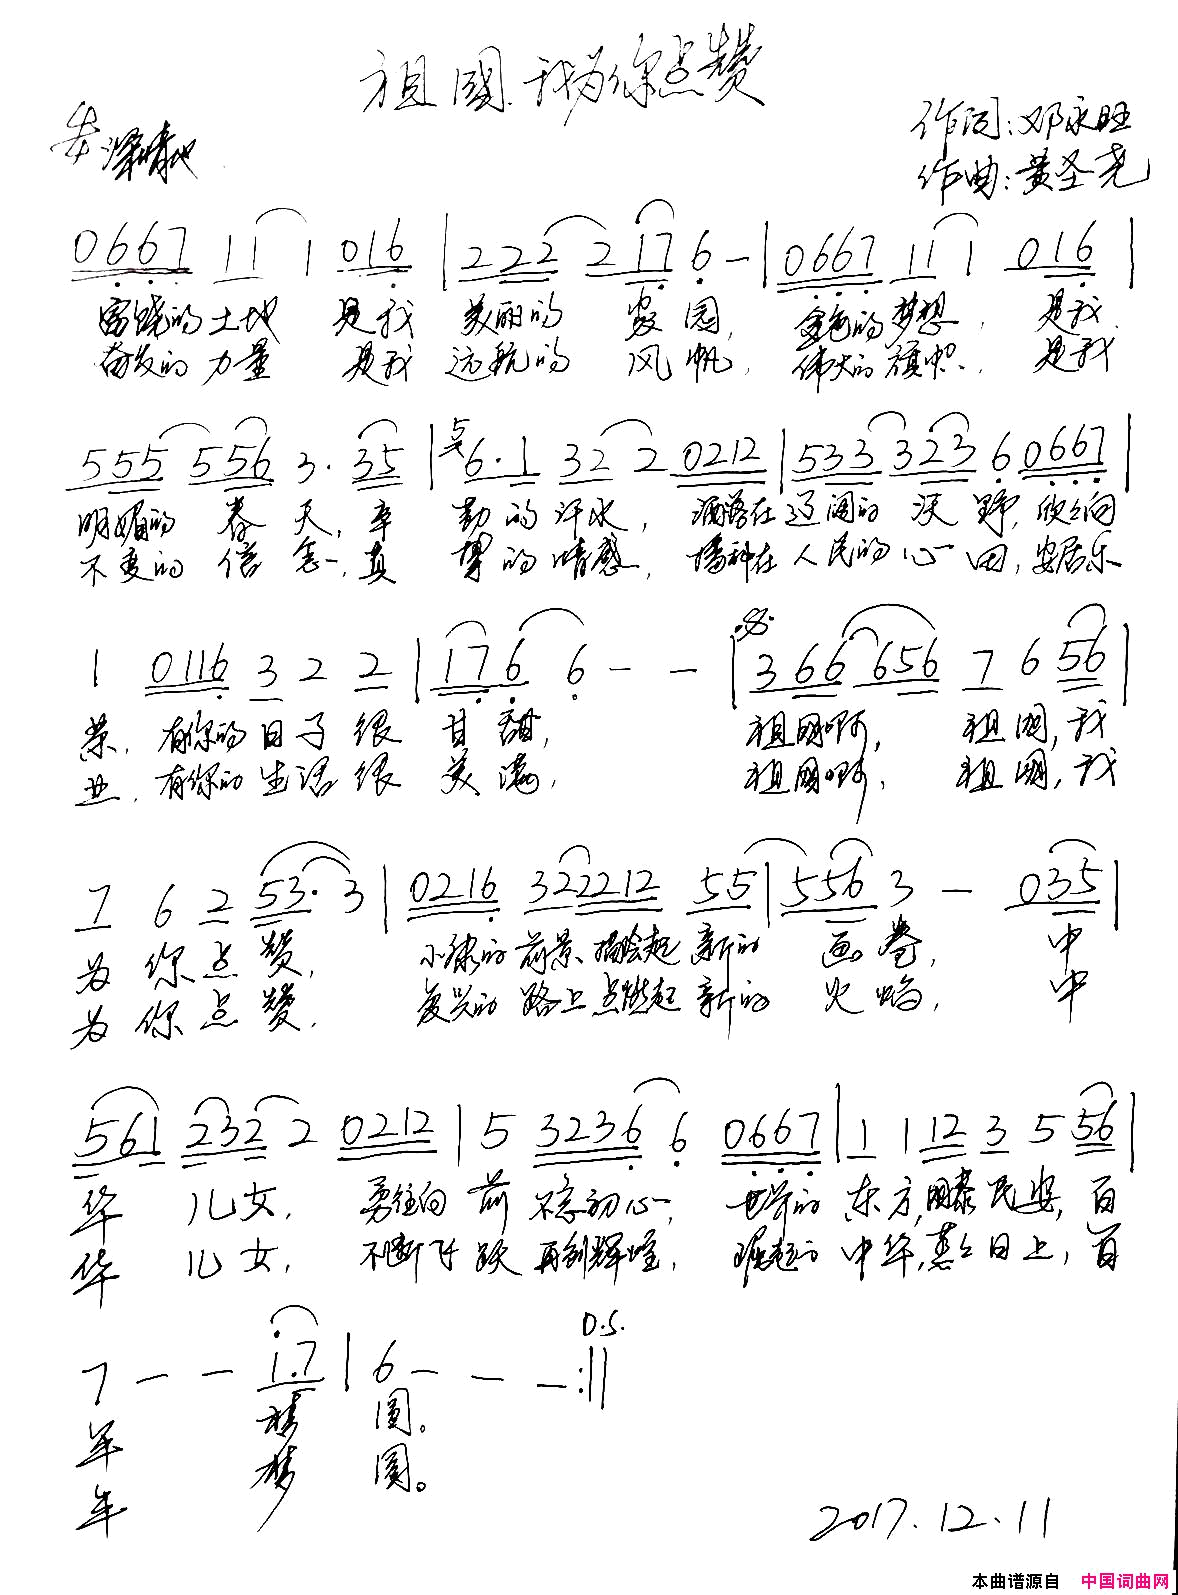 祖国,我为你点赞
深情地
作词:邓永旺
作曲:黄圣尧
0667 11 1 016 | 222 2 17 6 - | 0667 11 1 016 |
富饶的土地 是我 美丽的 家园, 金色的梦想, 是我
奋发的力量 是我 远航的 风帆, 伟大的旗帜, 是我
555 556 3· 35 | 5 6·1 32 2 0212 | 533 323 6 0667 |
明媚的 春天, 辛 勤的汗水, 洒落在辽阔的 沃野, 欣欣向
不变的信念, 真 挚的情感, 播种在人民的心田, 安居乐
1 0116 3 2 2 | 17 6 6 - - | 3 66 656 7 6 56 |
荣, 有你的日子很 甘甜, 祖国啊, 祖国, 我
业, 有你的生活很 美满, 祖国啊, 祖国, 我
7 6 2 53· 3 | 0216 322212 55 | 556 3 - 035 |
为你点赞, 小康的前景描绘起新的 画卷, 中
为你点赞, 复兴的路上点燃起新的 火焰, 中
561 232 2 0212 | 5 3236 6 0667 | 1 1 12 3 5 56 |
华 儿女, 勇往向前 不忘初心, 世界的东方, 国泰民安, 百
华 儿女, 不断飞跃 再创辉煌, 崛起的中华, 蒸蒸日上, 百
D.S.
7 - - 1·7 | 6 - - - :||
年 梦 圆。
年 梦 圆。
2017.12.11
本曲谱源自 中国词曲网